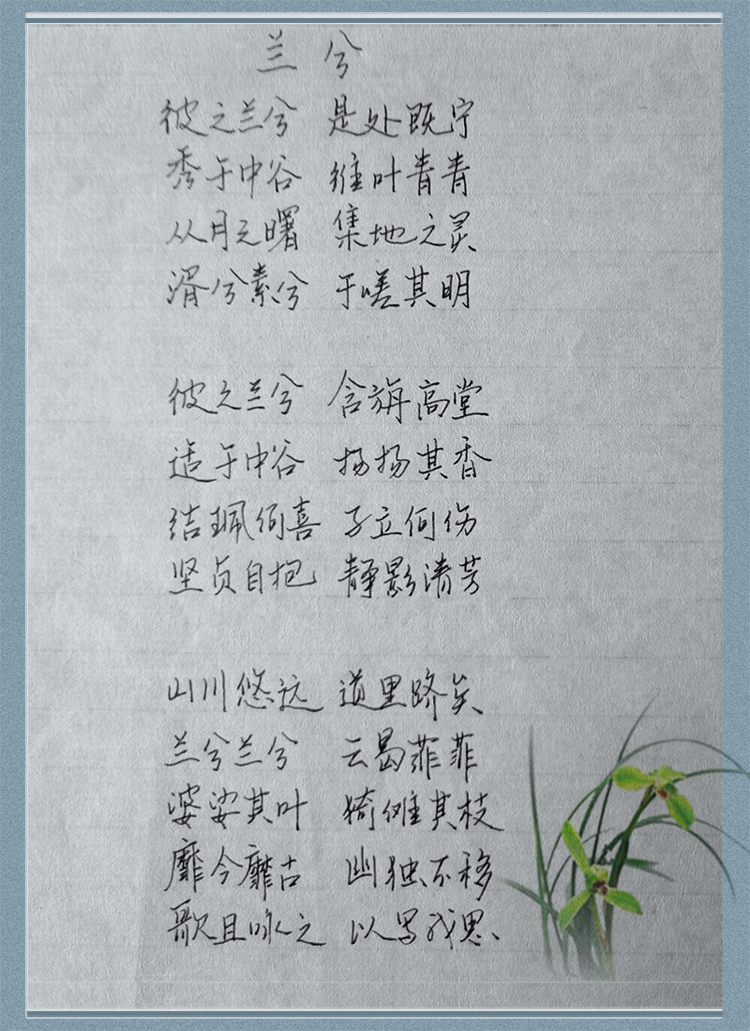 兰兮
彼之兰兮 是处既宁
秀于中谷 维叶青青
从月之曙 集地之灵
湑兮素兮 于嗟其明
彼之兰兮 含旃高堂
适于中谷 扬扬其香
结珮何喜 孑立何伤
坚贞自抱 静影清芳
山川悠远 道里跻矣
兰兮兰兮 云曷菲菲
婆娑其叶 猗傩其枝
靡今靡古 幽独不移
歌且咏之 以写我思